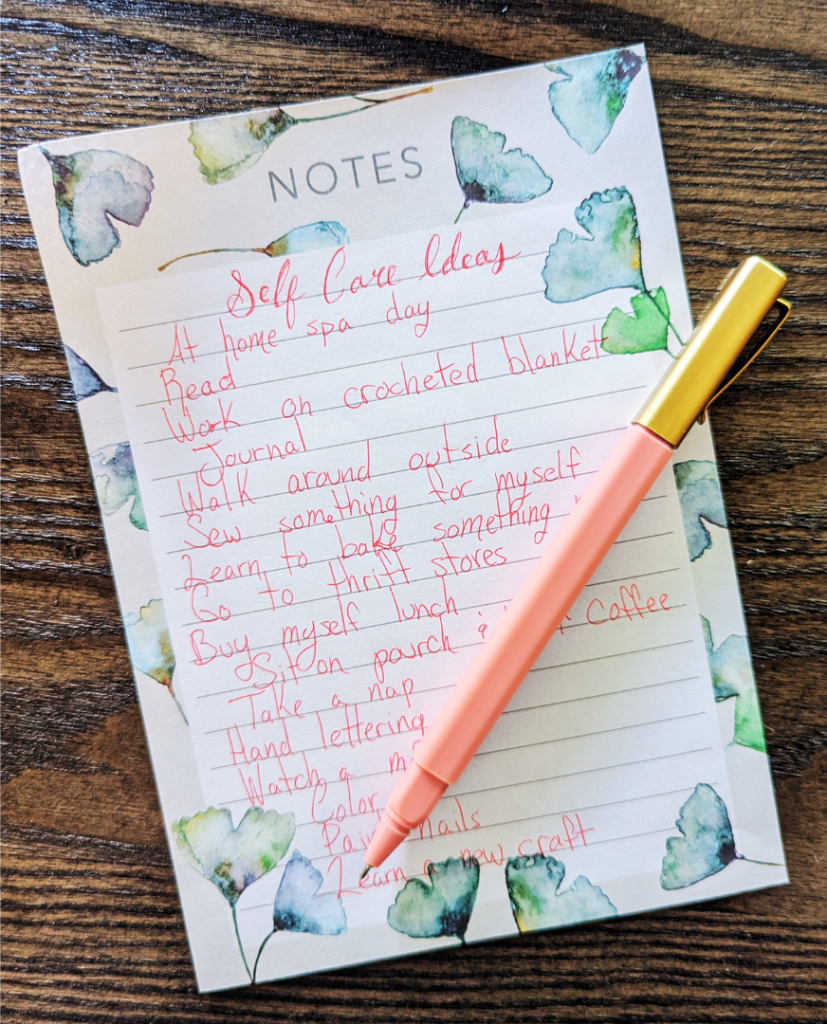 NOTES
Self Care Ideas
At home spa day
Read
Work on crocheted blanket
Journal
Walk around outside
Sew something for myself
Learn to bake something
Go to thrift stores
Buy myself lunch
Sit on pourch coffee
Take a nap
Hand lettering
Watch a
Color
nails
Learn a new craft